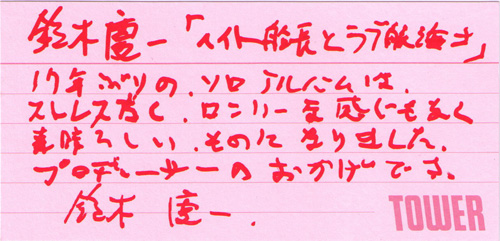 鈴木慶一「ヘイト船長とラブ航海士」
17年ぶりの、ソロアルバムは、
ストレスなく、ロンリーな感じもなく
素晴らしい、ものになりました。
プロデューサーのおかげです。
鈴木 慶一.
TOWER